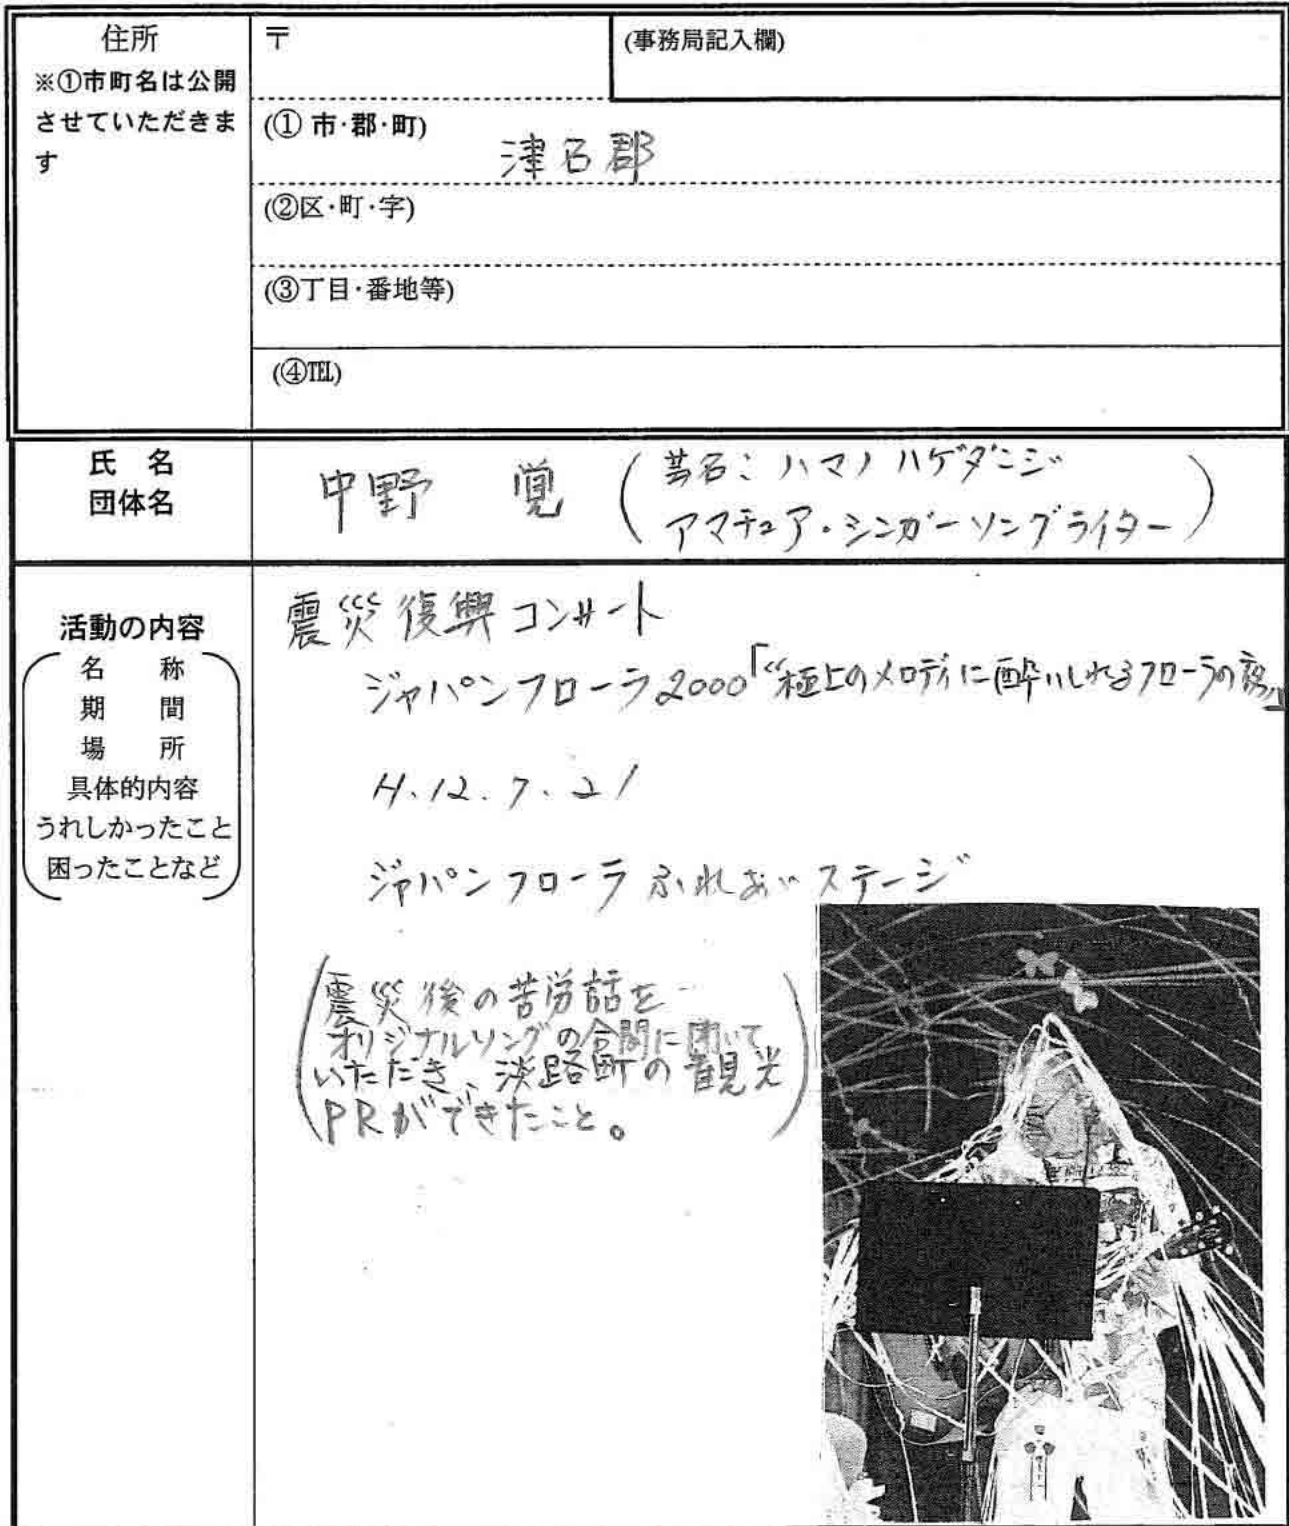 住所
※①市町名は公開
させていただきま
す
〒
(事務局記入欄)
(① 市・郡・町)
津名郡
(②区・町・字)
(③丁目・番地等)
(④TEL)
氏 名
団体名
中野 覚
(芸名:ハマノハゲダニジ
アマチュア・シンガーソングライター)
活動の内容
名 称
期 間
場 所
具体的内容
うれしかったこと
困ったことなど
震災復興コンサート
ジャパンフローラ2000「“極上のメロディに酔いしれるフローラの夜」
H.12.7.21
ジャパンフローラふれあいステージ
(震災後の苦労話を
オリジナルソングの合間に聞いて
いただき、淡路町の観光
PRができたこと。)